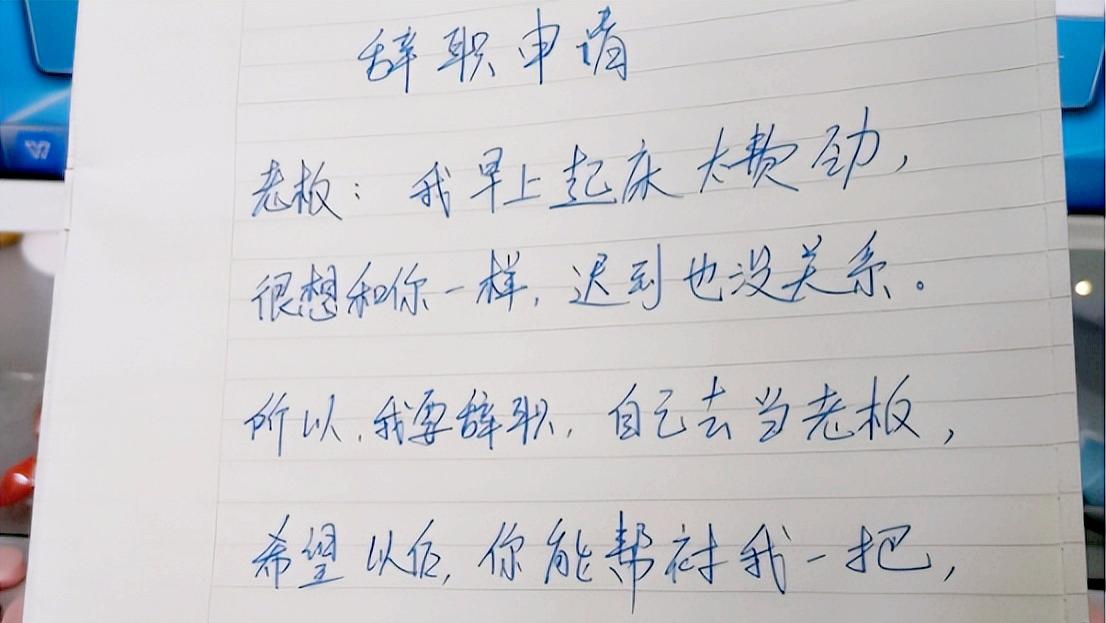 辞职申请
老板：我早上起床太费劲，
很想和你一样，迟到也没关系。
所以，我要辞职，自己去当老板，
希望以后，你能帮衬我一把，